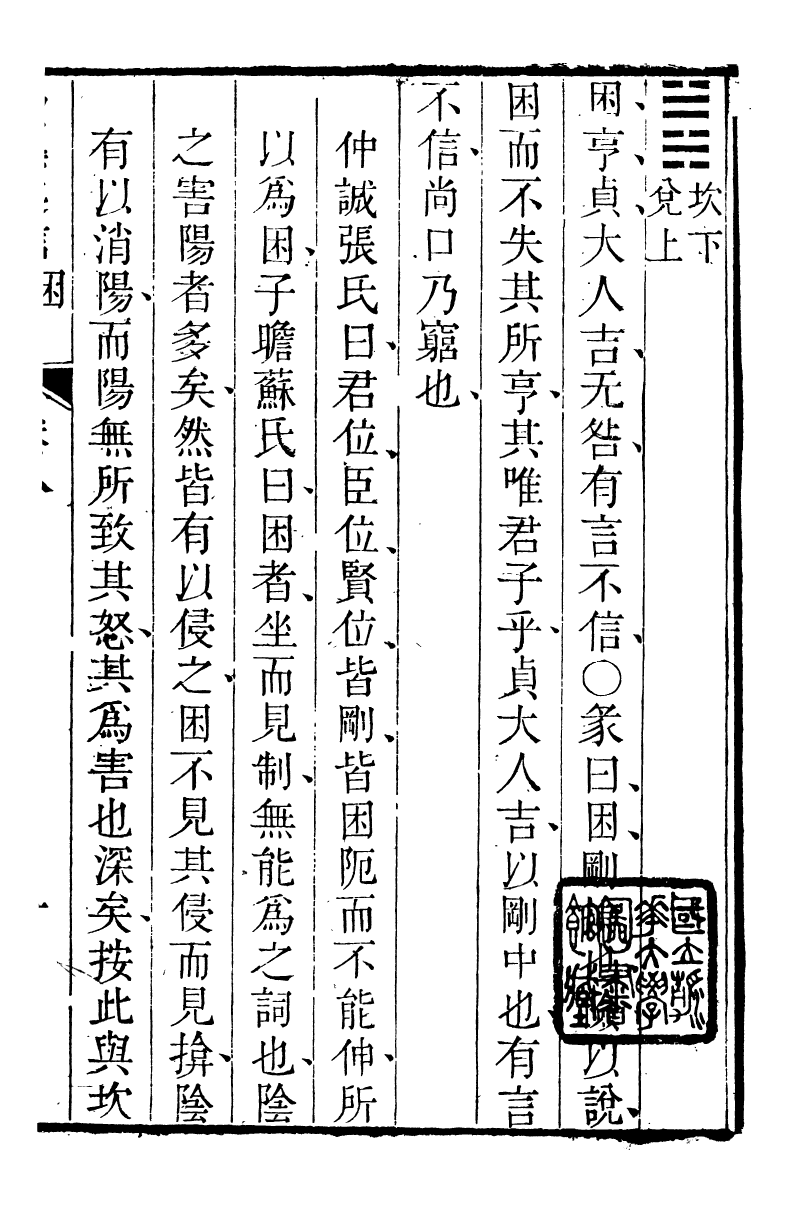 坎下
兌上
困、亨、貞、大人吉、无咎、有言不信、○彖曰、困、剛也以說、
困而不失其所亨、其唯君子乎、貞大人吉、以剛中也、有言
不信、尚口乃窮也、
仲誠張氏曰、君位、臣位、賢位、皆剛、皆困阨而不能伸、所
以爲困、子瞻蘇氏曰、困者、坐而見制、無能爲之詞也、陰
之害陽者多矣、然皆有以侵之、困不見其侵而見揜、陰
有以消陽、而陽無所致其怒、其爲害也深矣、按此與坎
困